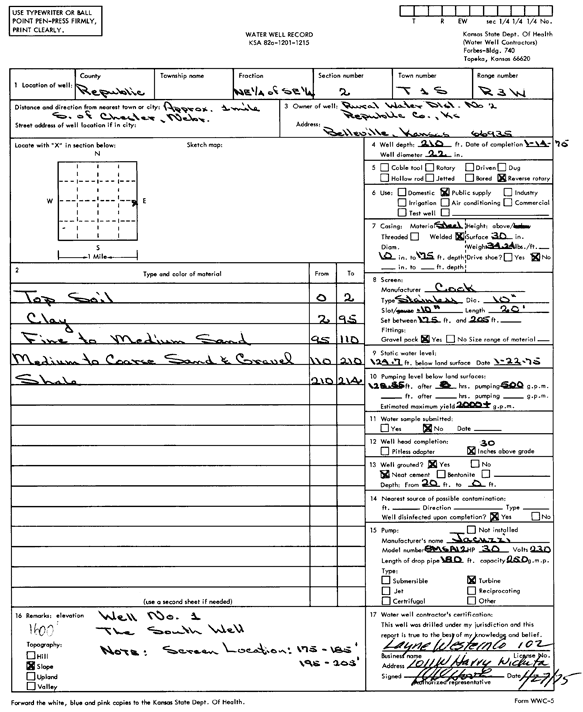 USE TYPEWRITER OR BALL
POINT PEN-PRESS FIRMLY,
PRINT CLEARLY.
WATER WELL RECORD
KSA 82a-1201-1215
T R EW sec 1/4 1/4 1/4 No.
Kansas State Dept. Of Health
(Water Well Contractors)
Forbes-Bldg. 740
Topeka, Kansas 66620
1 Location of well: County Republic Township name Fraction NE¼ of SE¼ Section number 2 Town number T 1 S Range number R 3 W
Distance and direction from nearest town or city: Approx. 1 mile
S. of Chester, Nebr.
Street address of well location if in city:
3 Owner of well: Rural Water Dist. No 2
Republic Co., Ks
Address: Belleville, Kansas 66935
Locate with "X" in section below: Sketch map:
N
W E
S
1 Mile
4 Well depth: 210 ft. Date of completion 1-14-75
Well diameter 22 in.
5 Cable tool Rotary Driven Dug
Hollow rod Jetted Bored Reverse rotary
6 Use: Domestic Public supply Industry
Irrigation Air conditioning Commercial
Test well
7 Casing: Material Steel Height: above/below
Threaded Welded Surface 30 in.
Diam. Weight 34.24 lbs./ft.
10 in. to 175 ft. depth Drive shoe? Yes No
in. to ft. depth
2 Type and color of material From To
Top Soil 0 2
Clay 2 95
Fine to Medium Sand 95 110
Medium to Coarse Sand & Gravel 110 210
Shale 210 214
(use a second sheet if needed)
8 Screen:
Manufacturer Cook
Type Stainless Dia. 10"
Slot/gauze Length 20'
Set between 175 ft. and 205 ft.
Fittings:
Gravel pack Yes No Size range of material
9 Static water level:
124.7 ft. below land surface Date 1-22-75
10 Pumping level below land surfaces:
ft. after hrs. pumping 500 g.p.m.
ft. after hrs. pumping g.p.m.
Estimated maximum yield 2000+ g.p.m.
11 Water sample submitted:
Yes No Date
12 Well head completion: 30
Pitless adapter Inches above grade
13 Well grouted? Yes No
Neat cement Bentonite
Depth: From 20 ft. to 0 ft.
14 Nearest source of possible contamination:
ft. Direction Type
Well disinfected upon completion? Yes No
15 Pump: Not installed
Manufacturer's name Jacuzzi
Model number HP 30 Volts 230
Length of drop pipe 180 ft. capacity 250 g.m.p.
Type:
Submersible Turbine
Jet Reciprocating
Certrifugal Other
16 Remarks: elevation
1600'
Well No. 1
The South Well
Note: Screen Location: 175-185'
195-205'
Topography:
Hill
Slope
Upland
Valley
17 Water well contractor's certification:
This well was drilled under my jurisdiction and this
report is true to the best of my knowledge and belief.
Layne Western Co 102
Business name License No.
Address 1011 W Harry Wichita
Signed Date 1/27/75
Authorized representative
Forward the white, blue and pink copies to the Kansas State Dept. Of Health.
Form WWC-5